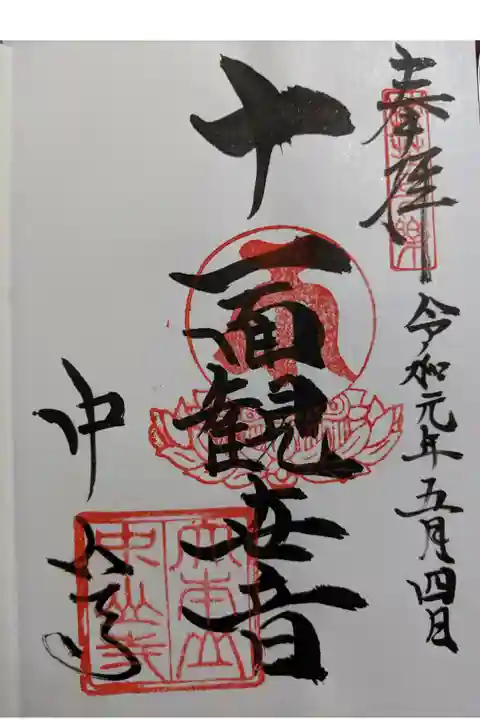 奉拝
令和元年五月四日
十一面観世音
中山寺
大本山
中山寺